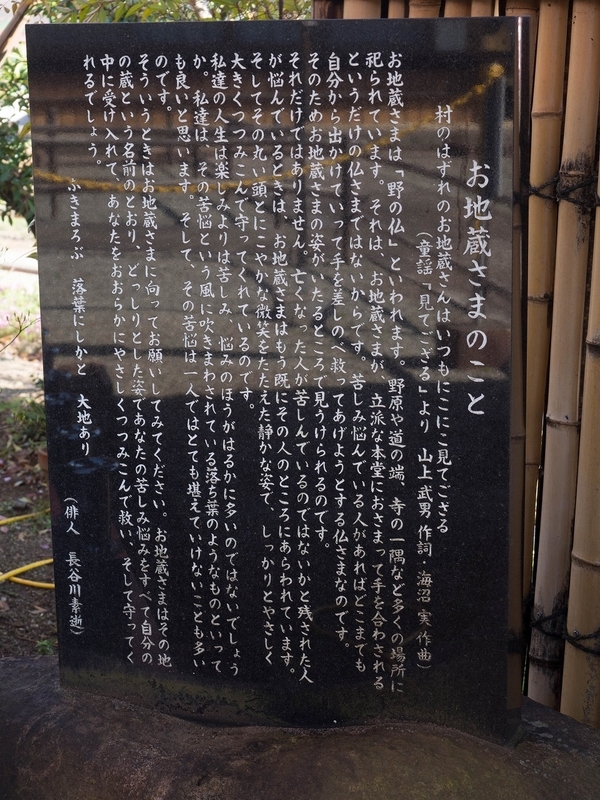 お地蔵さまのこと
村のはずれのお地蔵さんはいつもにこにこ見てござる
(童謡「見てござる」より　山上 武男 作詞　海沼 実 作曲)
お地蔵さまは「野の仏」といわれます。野原や道の端、寺の一隅など多くの場所に
祀られています。それは、お地蔵さまが、立派な本堂におさまって手を合わされる
というだけの仏さまではないからです。苦しみ悩んでいる人があればどこまでも
自分から出かけていって手を差しのべ救ってあげようとする仏さまなのです。
そのためお地蔵さまの姿がいたるところで見うけられるのです。
それだけではありません。亡くなった人が苦しんでいるのではないかと残された人
が悩んでいるときは、お地蔵さまはもう既にその人のところにあらわれています。
そしてその丸い頭とにこやかな微笑をたたえた静かな姿で、しっかりとやさしく
大きくつつみこんで守ってくれているのです。
私達の人生は楽しみよりは苦しみ、悩みのほうがはるかに多いのではないでしょう
か。私達は、その苦悩という風に吹きまわされている落ち葉のようなものといって
も良いと思います。そして、その苦悩は一人ではとても堪えていけないことも多い
のです。
そういうときはお地蔵さまに向ってお願いしてみてください。お地蔵さまはその地
の蔵という名前のとおり、どっしりとした姿であなたの苦しみ悩みをすべて自分の
中に受け入れて、あなたをおおらかにやさしくつつみこんで救い、そして守ってく
れるでしょう。
ふきまろぶ　落葉にしかと　大地あり
(俳人　長谷川素逝)